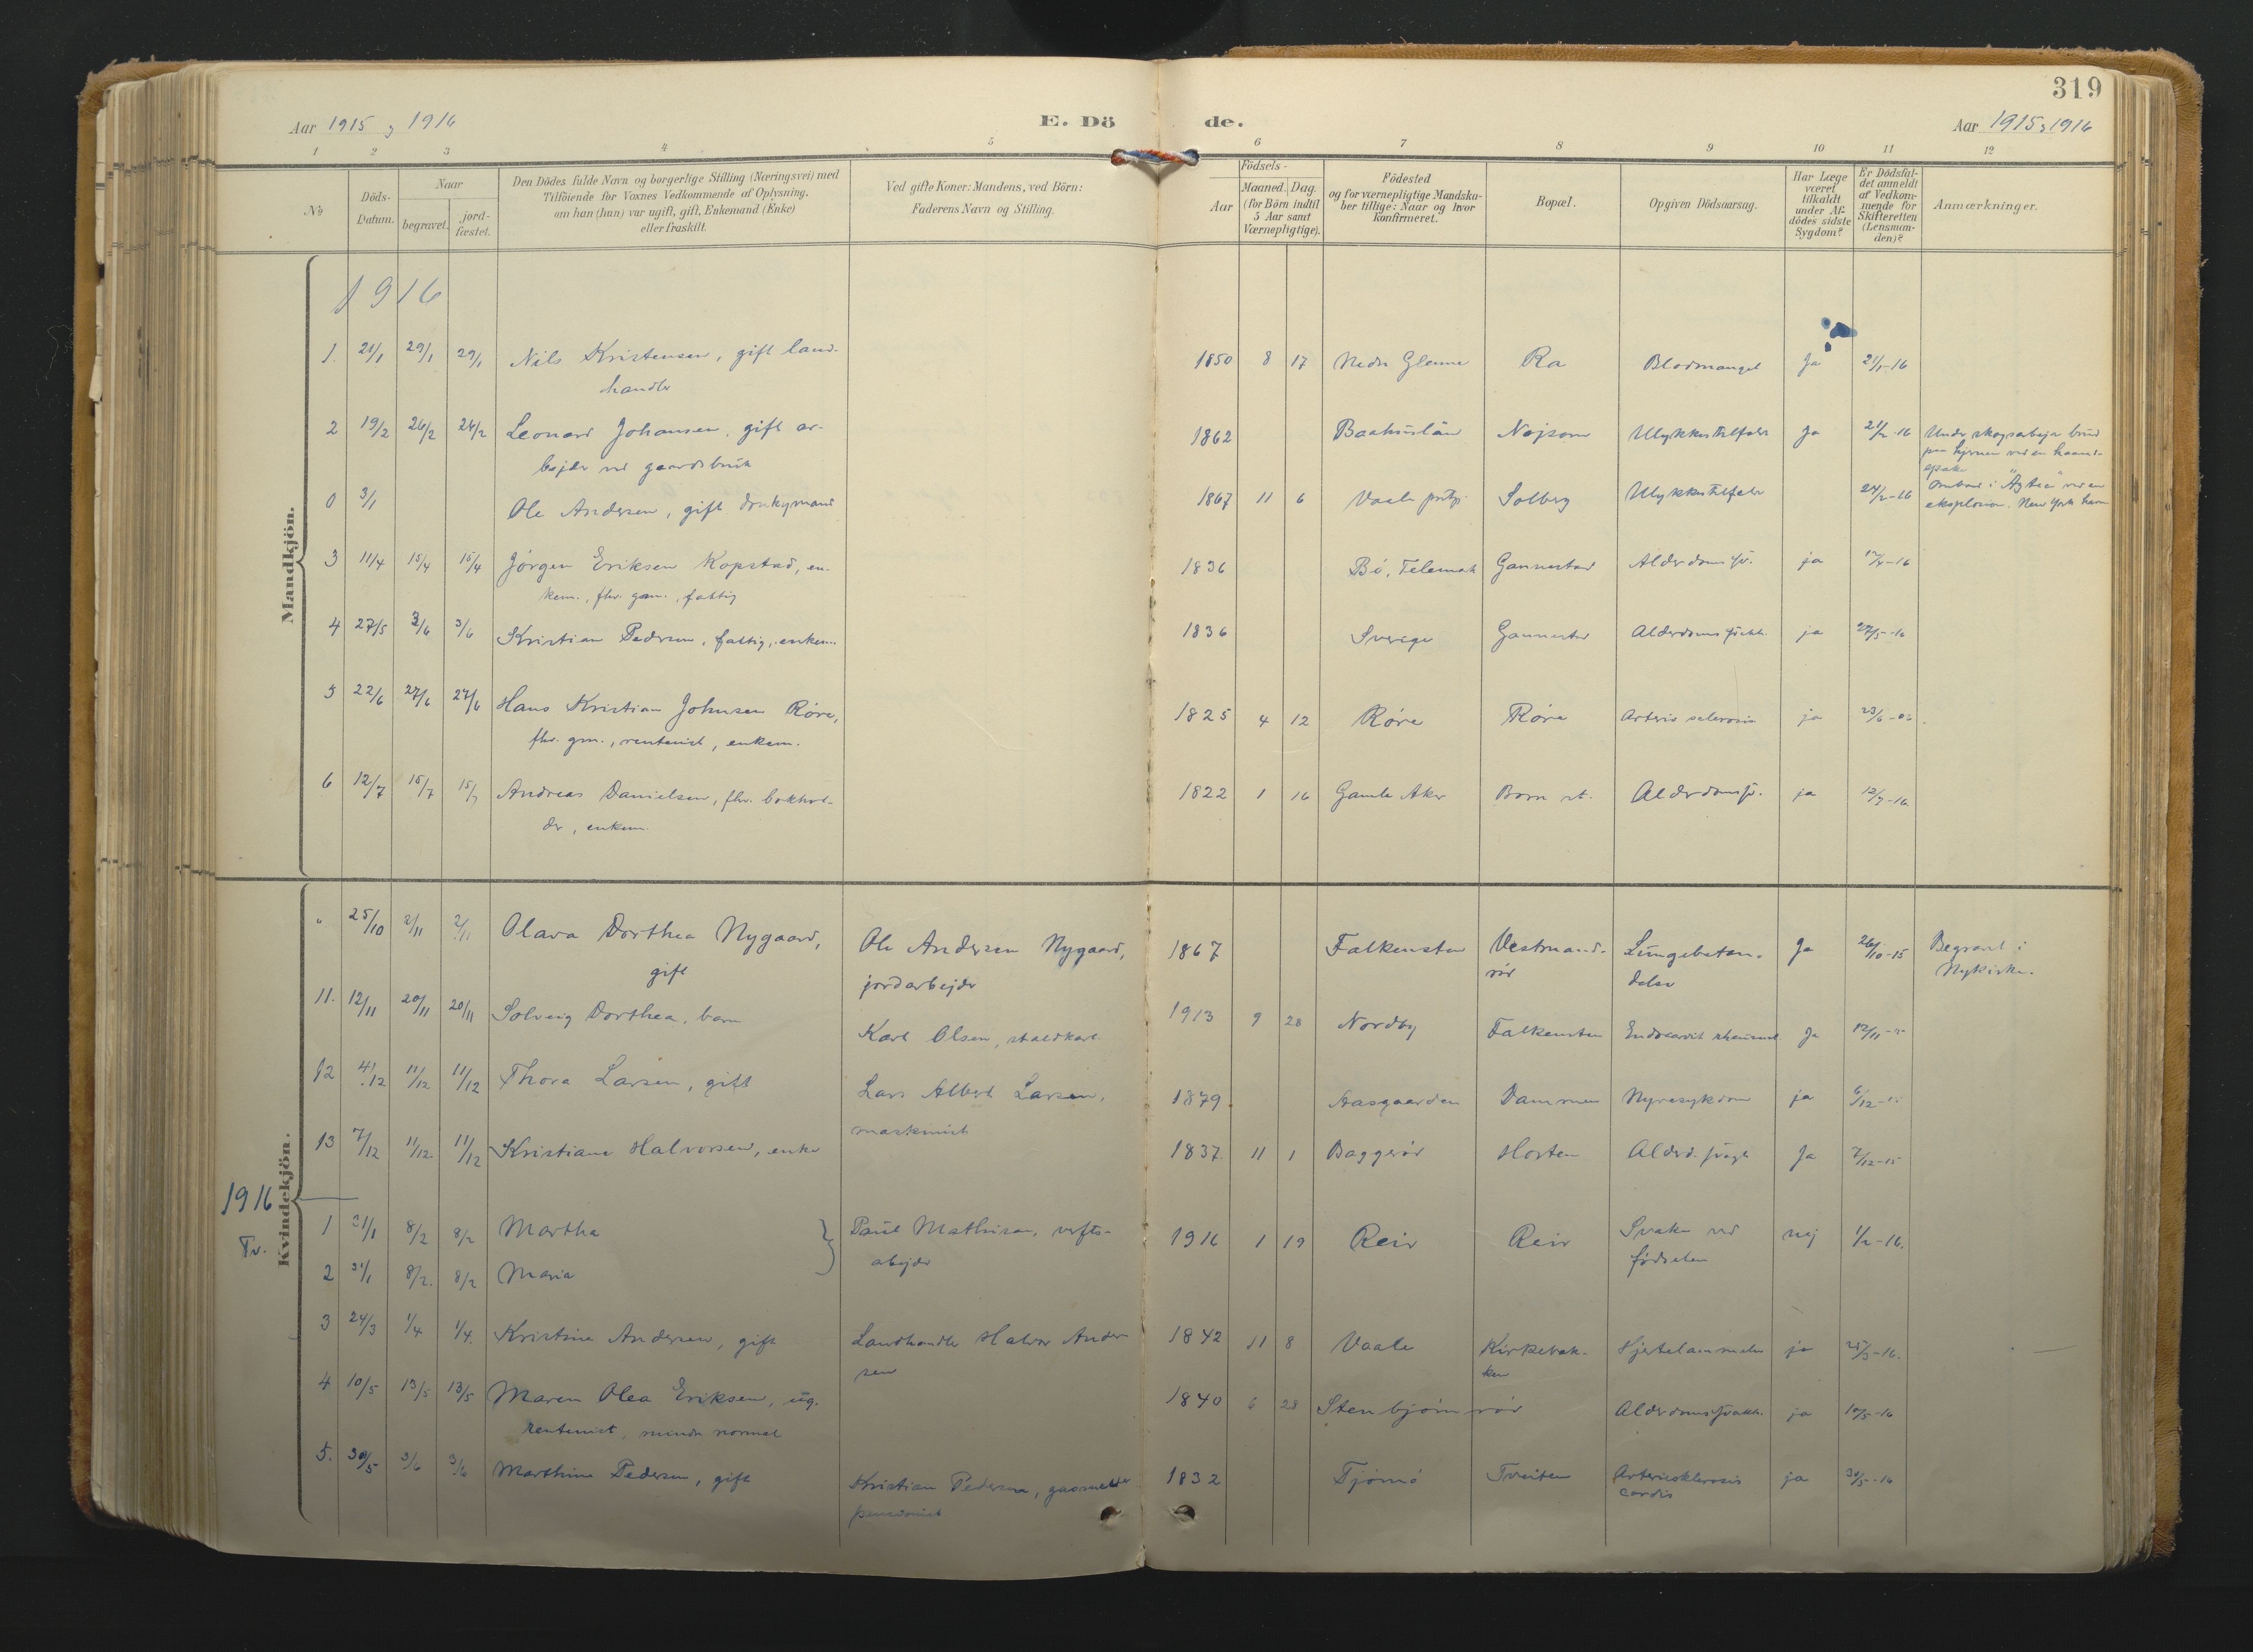 319
Aar 1915 og 1916 E. Dö de. Aar 1915 & 1916
1 2 3 4 5 6 7 8 9 10 11 12
No Döds-Datum. Naar begravet. jordfæstet.
Den Dödes fulde Navn og borgerlige Stilling (Næringsvei) med
Tilföiende for Voxnes Vedkommende af Oplysning,
om han (hun) var ugift, gift, Enkemand (Enke)
eller fraskilt.
Ved gifte Koner: Mandens, ved Börn:
Faderens Navn og Stilling.
Födsels-
Aar Maaned. Dag.
(for Börn indtil
5 Aar samt
Værnepligtige).
Födested
og for værnepligtige Mandska-
ber tillige: Naar og hvor
konfirmeret.
Bopæl.
Opgiven Dödsaarsag.
Har Læge
været
tilkaldt
under Af-
dödes sidste
Sygdom?
Er Dödsfal-
det anmeldt
af Vedkom-
mende for
Skifteretten
(Lensman-
den)?
Anmærkninger.
Mandkjön.
1916
1. 21/1 29/1 29/1 Nils Kristensen, gift land- 1850 8 17 Nedre Glenne Ra Blodmangel Ja 21/1-16
handler
2 19/2 26/2 26/2 Leonard Johansen, gift ar- 1862 Baahuslän Nøjsom Ulykkestilfælde Ja 21/2-16 Under skogsarbeide
beider ved gaardsbruk
0 3/1 Ole Andersen, gift donkymand 1867 11 6 Vaale prstgj. Solberg Ulykkestilfælde 24/2-16 Ombord i "Aztec" ved en
eksplosion. New York havn
3 11/4 15/4 15/4 Jørgen Eriksen Kopstad, en- 1836 Bö, Telemark Gannestad Alderdomssv. ja 12/4-16
kem., fhv. gm., fattig
4 27/5 3/6 3/6 Kristian Pedersen, fattig, enkem. 1836 Sverige Gannestad Alderdomssvakh. ja 27/5-16
5 22/6 27/6 27/6 Hans Kristian Johnsen Röre, 1825 4 12 Röre Röre Arterio sclerosis ja 23/6
fhv. gm., rentenist, enkem.
6 12/7 15/7 15/7 Andreas Danielsen, fhv. bokhol- 1822 1 16 Gamle Aker Borre st. Alderdomssv. ja 12/7-16.
der, enkem.
Kvindekjön.
" 25/10 2/11 2/11 Olava Dorthea Nygaard, Ole Andersen Nygaard, 1867 Falkensten Vestmand- Lungebeten- Ja 26/10-15 Begravet i
gift jordarbejder röd delse Nykirke.
11. 12/11 20/11 20/11 Solveig Dorthea, barn Karl Olsen, staldkarl 1913 9 28 Nordby Falkensten Endocardit rheumat. Ja 12/11-15
12 4/12 11/12 11/12 Thora Larsen, gift Lars Albert Larsen, 1879 Aasgaarden Dammen Nyresykdom ja 6/12-15
maskinist
13 7/12 11/12 11/12 Kristiane Halvorsen, enke 1837 11 1 Baggeröd Horten Alderd. svagh. Ja 7/12-15
1916
Tv.
1 31/1 8/2 8/2 Martha Paul Mathisen, verfts- 1916 1 19 Reir Reir Svake ved nej 1/2-16.
arbejder födselen
2 31/1 8/2. 8/2 Maria
3 24/3 1/4 1/4. Kristine Andersen, gift Landhandler Halvor Ander- 1842 11 8 Vaale Kirkebak- Hjertelammelse ja 25/3-16.
sen ken
4 10/5 13/5 13/5 Maren Olea Eriksen, ug. 1840 6 28 Stenbjörnröd Alderdomssvakh. ja 10/5-16
rentenist, mindre normal
5. 30/5 3/6 3/6 Marthine Pedersen, gift Kristian Pedersen, gasmester 1832 Tjömö Tveiten Arteriosklerosis ja 30/5-16
pensionist cordis